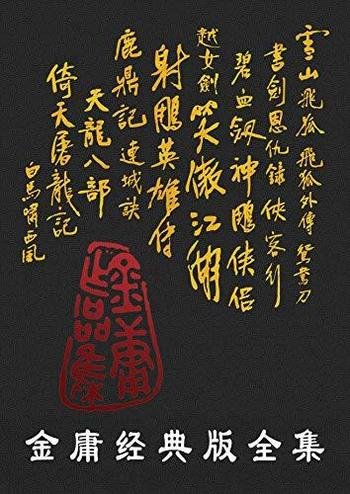 雪山飛狐 飛狐外傳 鴛鴦刀
書劍恩仇錄 俠客行
碧血劍 神鵰俠侶
越女劍 笑傲江湖
射鵰英雄傳
鹿鼎記 連城訣
天龍八部
倚天屠龍記
白馬嘯西風
金庸
作品集
金庸经典版全集